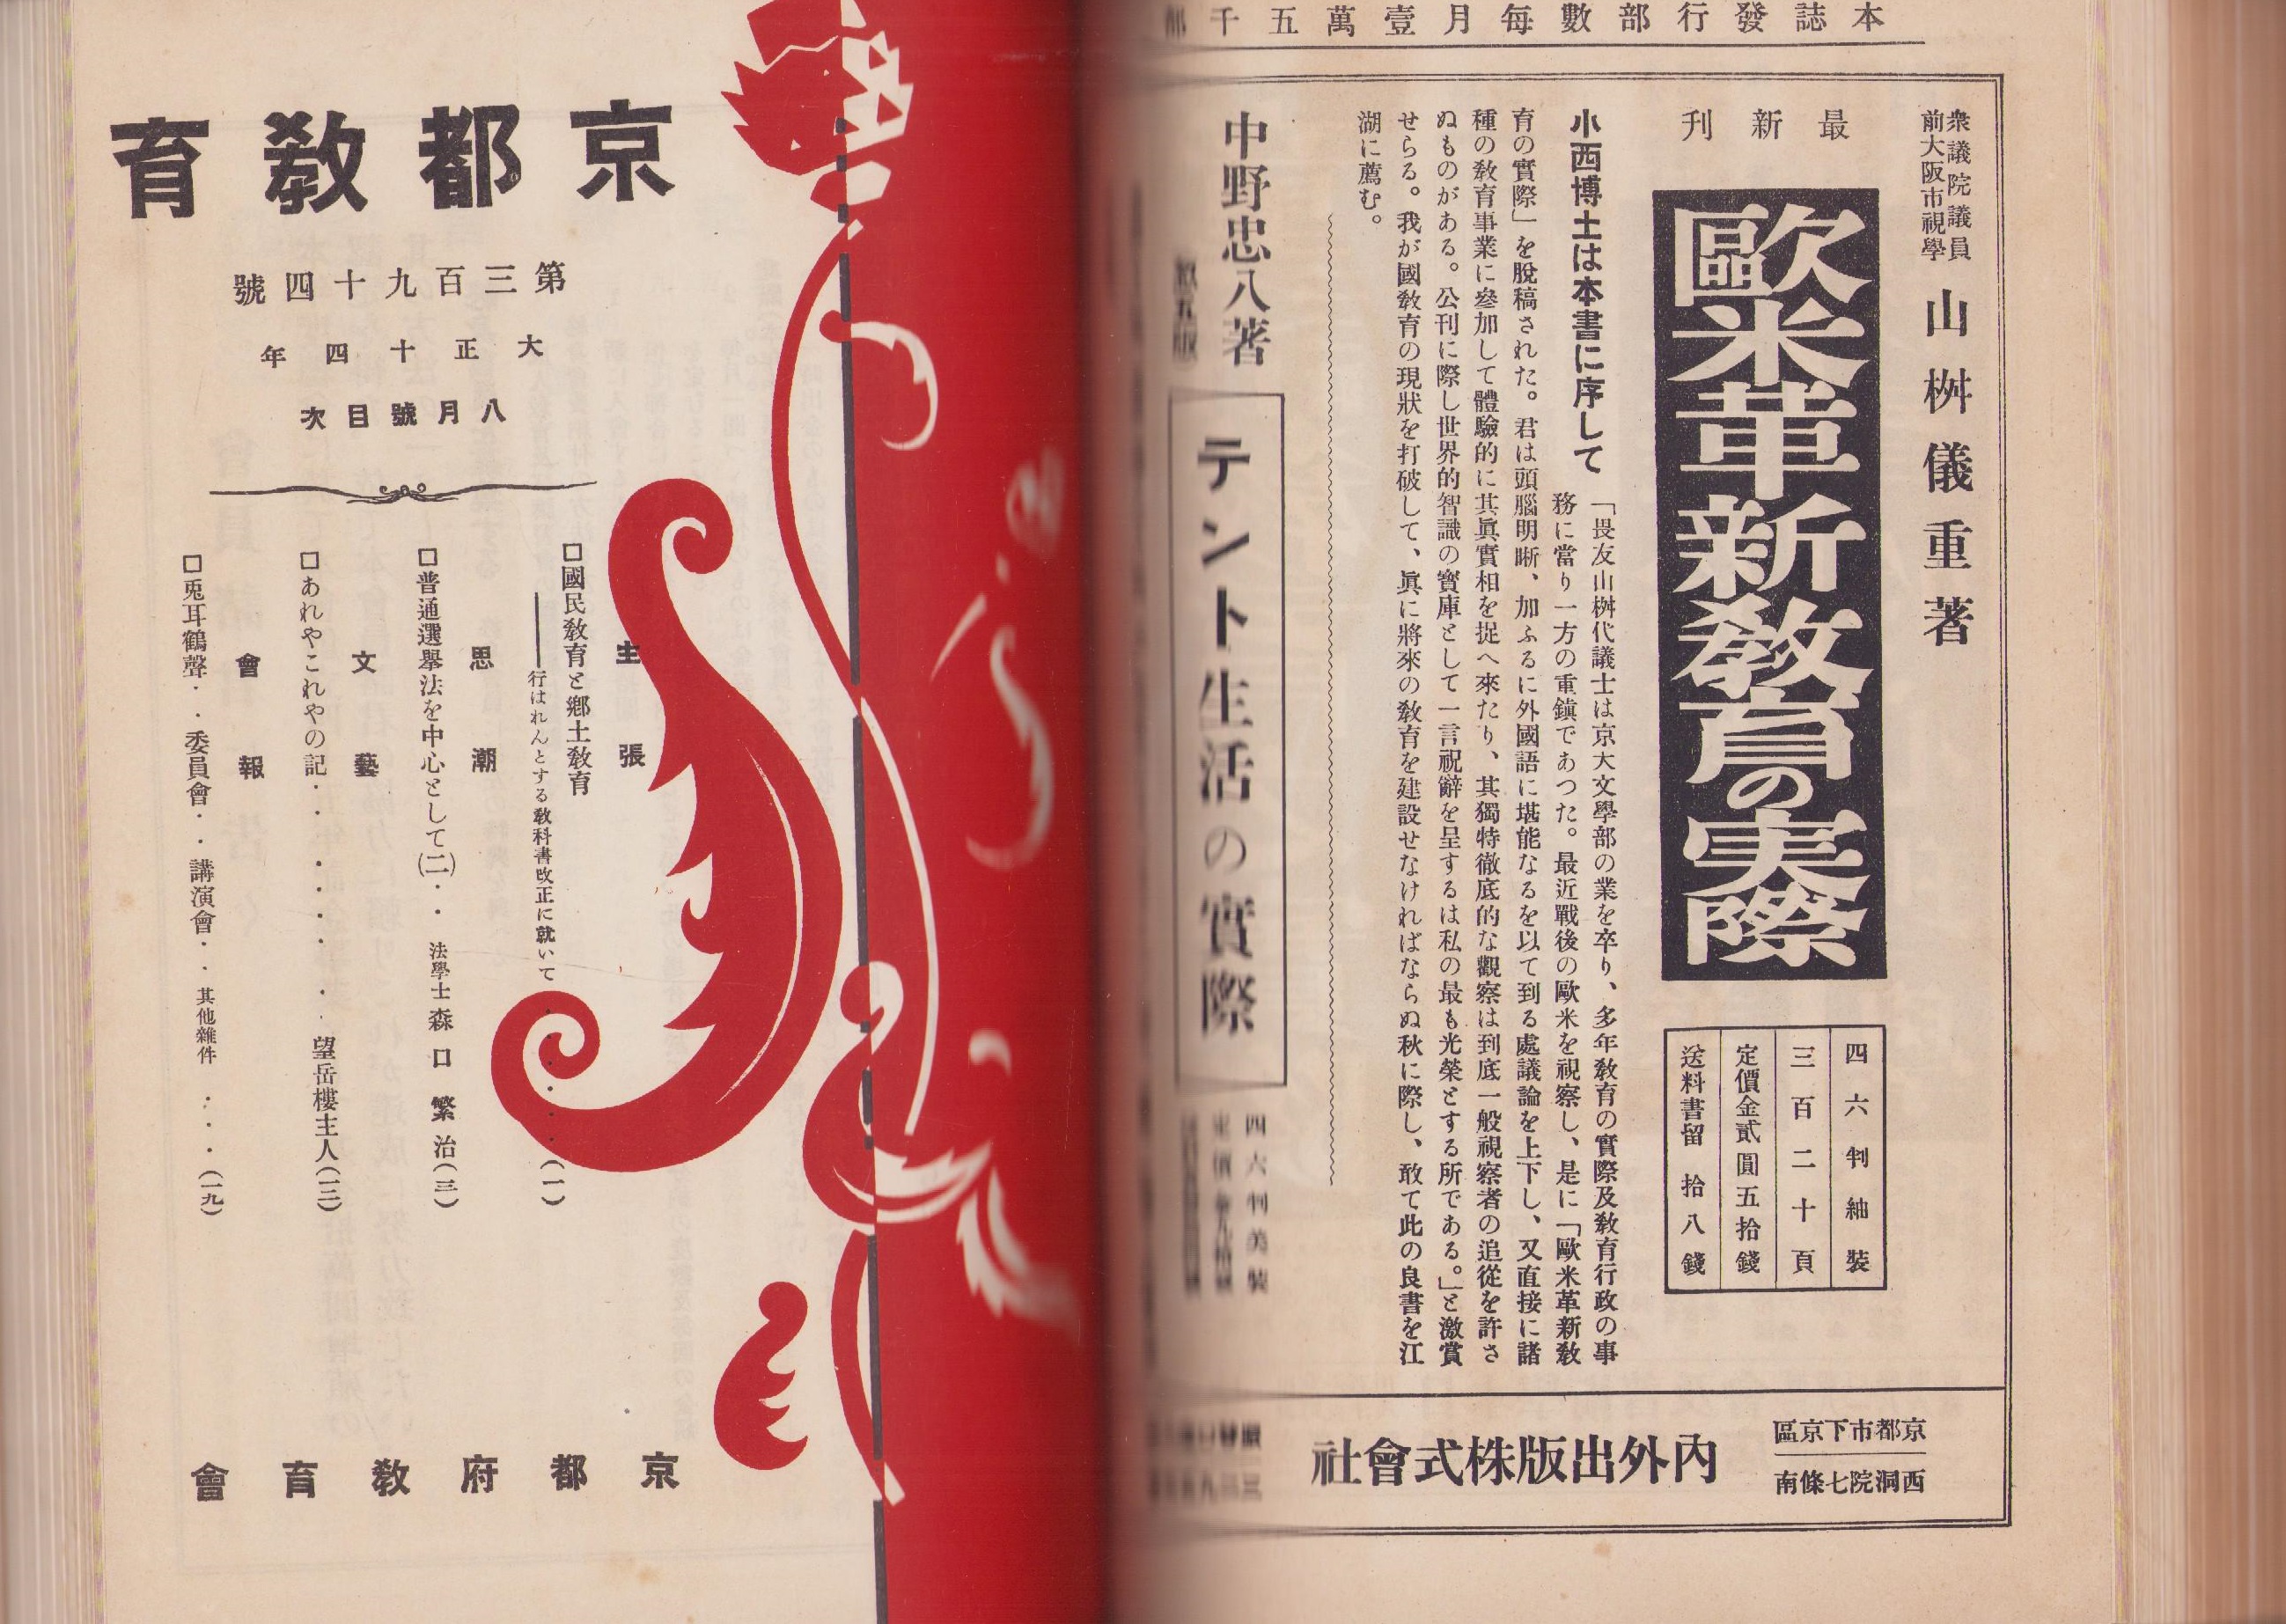 本誌發行部數每月壹萬五千部
衆議院議員
前大阪市視學
山桝儀重著
最新刊
歐米革新敎育の実際
四六判紬裝
三百二十頁
定價金貳圓五拾錢
送料書留拾八錢
小西博士は本書に序して
「畏友山桝代議士は京大文學部の業を卒り、多年敎育の實際及敎育行政の事
務に當り一方の重鎮であつた。最近戰後の歐米を視察し、是に「歐米革新敎
育の實際」を脫稿された。君は頭腦明晰、加ふるに外國語に堪能なるを以て到る處議論を上下し、又直接に諸
種の敎育事業に參加して體驗的に其眞實相を捉へ來たり、其獨特徹底的な觀察は到底一般視察者の追從を許さ
ぬものがある。公刊に際し世界的智識の寶庫として一言祝辭を呈するは私の最も光榮とする所である。」と激賞
せらる。我が國敎育の現狀を打破して、眞に將來の敎育を建設せなければならぬ秋に際し、敢て此の良書を江
湖に薦む。
中野忠八著
テント生活の實際
四六判美裝
京都市下京區
西洞院七條南
內外出版株式會社
京都敎育
第三百九十四號
大正十四年
八月號目次
主張
□國民敎育と鄕土敎育
――行はれんとする敎科書改正に就いて・・・・・・(一)
思潮
□普通選擧法を中心として(二)・・法學士森口繁治(三)
文藝
□あれやこれやの記・・・・・・・・望岳樓主人(一三)
會報
□兎耳鶴聲・・委員會・・講演會・・其他雜件・・・(一九)
京都府敎育會